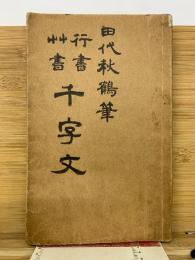 田代秋鶴筆
行書
艸書
千字文